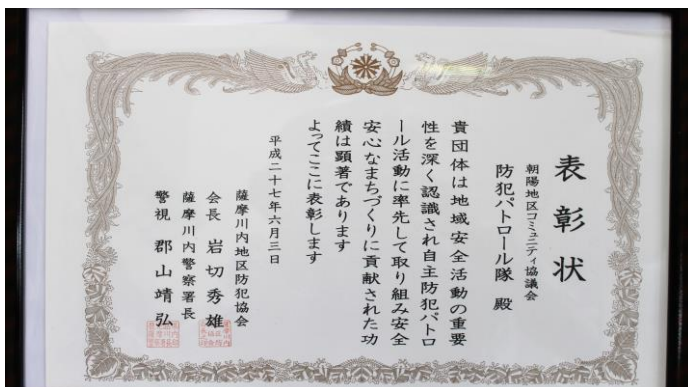 表彰状
朝陽地区コミュニティ協議会
防犯パトロール隊 殿
貴団体は地域安全活動の重要
性を深く認識され自主防犯パトロ
ール活動に率先して取り組み安全
安心なまちづくりに貢献された功
績は顕著であります
よってここに表彰します
平成二十七年六月三日
薩摩川内地区防犯協会
会長 岩切秀雄
薩摩川内警察署長
警視 郡山靖弘